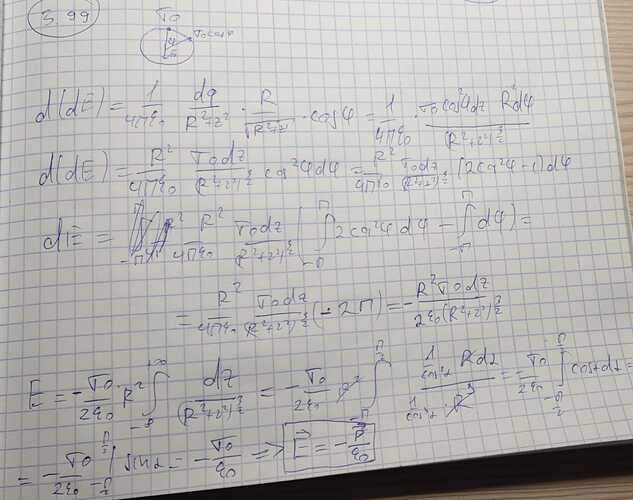 3.99
σ₀
σ₀cosφ
d(dE) = 1/4πε₀ dq/R²+z² · R/√R²+z² · cosφ = 1/4πε₀ · σ₀cos²φdz R²dφ/(R²+z²)^3/2
d(dE) = R²/4πε₀ σ₀dz/(R²+z²)^3/2 cos²φdφ = R²/4πε₀ σ₀dz/(R²+z²)^3/2 (2cos²φ-1)dφ
dE = R²/4πε₀ σ₀dz/(R²+z²)^3/2 (∫_-π^π 2cos²φdφ - ∫_-π^π dφ) =
= R²/4πε₀ σ₀dz/(R²+z²)^3/2 (-2π) = - R²σ₀dz/2ε₀(R²+z²)^3/2
E = - σ₀/2ε₀ R² ∫_-∞^+∞ dz/(R²+z²)^3/2 = - σ₀/2ε₀ R² ∫_-π/2^π/2 1/cos²α Rdα / 1/cos³α · R³ = - σ₀/2ε₀ ∫_-π/2^π/2 cosαdα =
= - σ₀/2ε₀ |_-π/2^π/2 sinα = - σ₀/ε₀ => E⃗ = - P⃗/ε₀